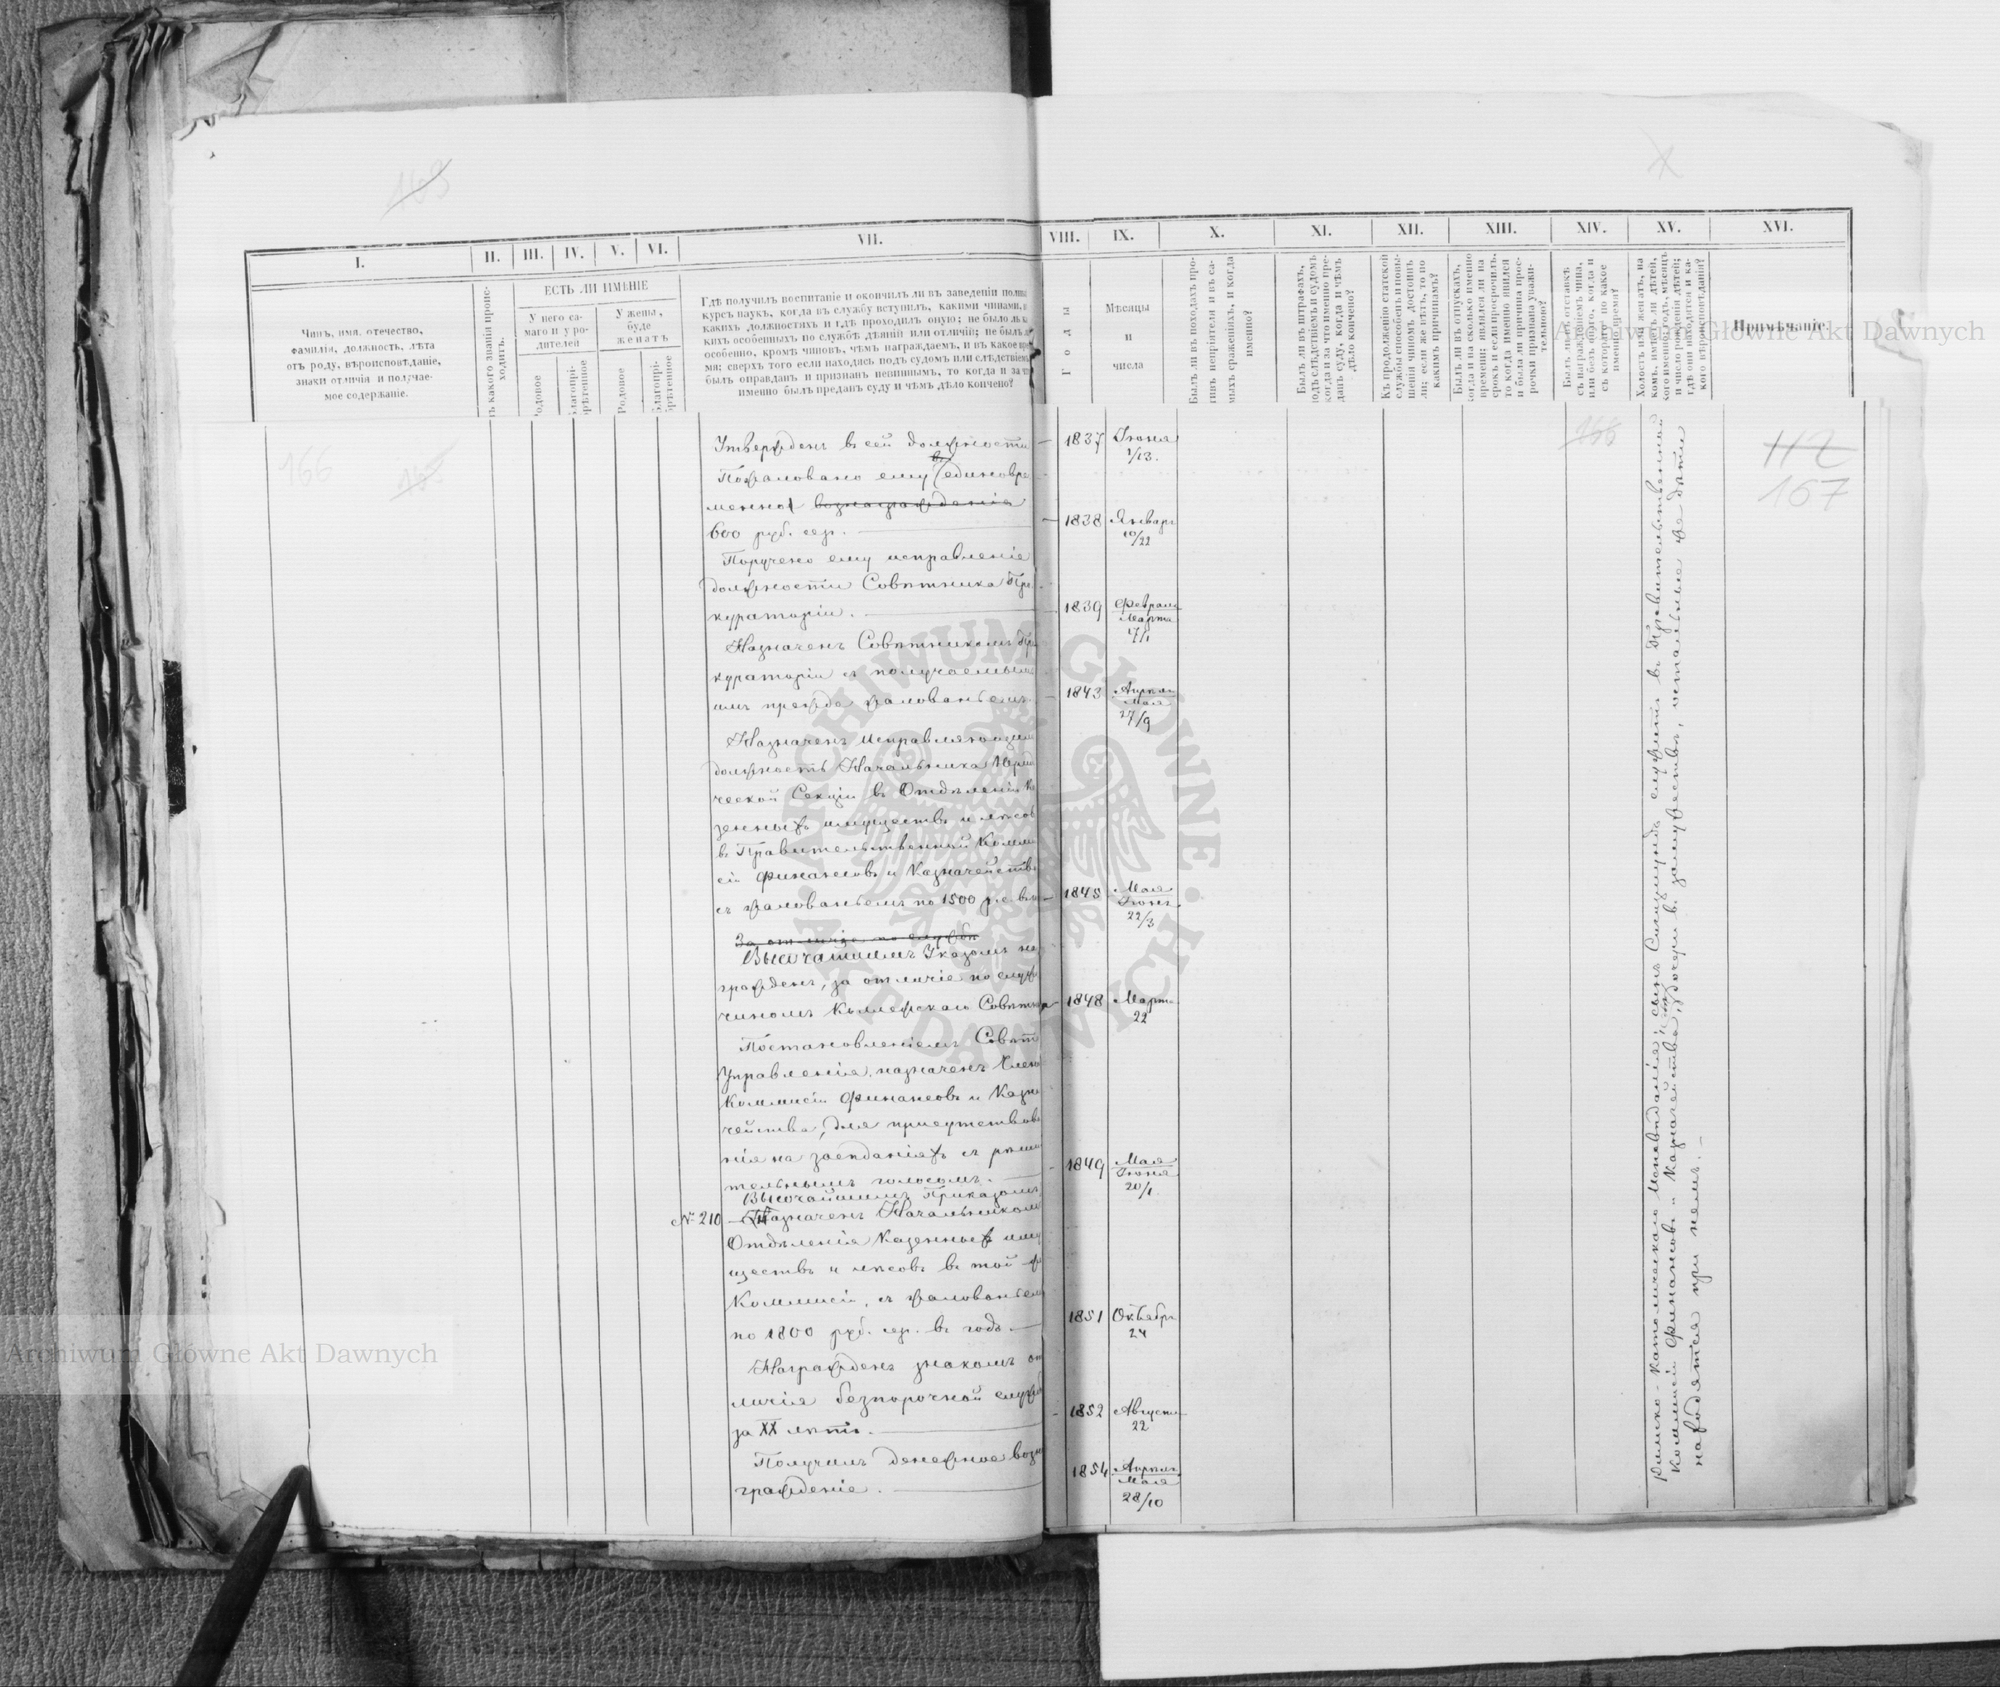 163
X
I.
II.
III.
IV.
V.
VI.
VII.
VIII.
IX.
X.
XI.
XII.
XIII.
XIV.
XV.
XVI.
Чинъ, имя, отечество,
фамилія, должность, лѣта
отъ роду, вѣроисповѣданіе,
знаки отличія и получае-
мое содержаніе.
Изъ какого званія проис-
ходитъ.
ЕСТЬ ЛИ ИМѢНІЕ
У него са-
маго и у ро-
дителей
У жены,
буде
женатъ
Родовое
Благопрі-
обрѣтенное
Родовое
Благопрі-
обрѣтенное
Гдѣ получилъ воспитаніе и окончилъ ли въ заведеніи полный
курсъ наукъ, когда въ службу вступилъ, какими чинами, въ
какихъ должностяхъ и гдѣ проходилъ оную; не было ль ка-
кихъ особенныхъ по службѣ дѣяній или отличій; не былъ ли
особенно, кромѣ чиновъ, чѣмъ награждаемъ, и въ какое вре-
мя; сверхъ того если находясь подъ судомъ или слѣдствіемъ,
былъ оправданъ и признанъ невиннымъ, то когда и за что
именно былъ преданъ суду и чѣмъ дѣло кончено?
Годы
Мѣсяцы
и
числа
Былъ ли въ походахъ про-
тивъ непріятеля и въ са-
мыхъ сраженіяхъ, и когда
именно?
Былъ ли въ штрафахъ,
подъ слѣдствіемъ и судомъ
когда и за что именно пре-
данъ суду, когда и чѣмъ
дѣло кончено?
Къ продолженію статской
службы способенъ и повы-
шенія чиномъ достоинъ
ли; если же нѣтъ, то по
какимъ причинамъ?
Былъ ли въ отпускахъ,
когда и на сколько именно
времени; являлся ли на
срокъ и если просрочилъ,
то когда именно явился
и была ли причина прос-
рочки признана уважи-
тельною?
Былъ ли въ отставкѣ
съ награжденіемъ чина,
или безъ онаго, когда и
съ котораго по какое
именно время?
Холостъ или женатъ, на
комъ, имѣетъ ли дѣтей,
кого именно; годъ, мѣсяцъ
и число рожденія дѣтей;
гдѣ они находятся и ка-
кого вѣроисповѣданія?
Примѣчаніе
166
Утвержденъ въ сей должности
1837
Іюня
1/13.
Пожаловано ему въ единовре-
менно вознагражденіе
600 руб. сер.
1838
Января
10/22
Поручено ему исправленіе
должности Совѣтника Про
кураторіи.
1839
Февраля
Марта
17/1
Назначенъ Совѣтникомъ Про
кураторіи съ получаемымъ
имъ прежде жалованьемъ
1843
Апрѣля
Мая
27/9
Назначенъ Исправляющимъ
должность Начальника Юриди
ческой Секціи въ Отдѣленіи Ка
зенныхъ имуществъ и лѣсовъ
въ Правительственной Комми
сіи Финансовъ и Казначейства
съ жалованьемъ по 1500 р. с. въ
1845
Мая
Іюня
22/3
За отличіе по службѣ
Высочайшимъ Указомъ на
гражденъ, за отличіе по служ
чиномъ Коллежскаго Совѣтника
1848
Марта
22
Постановленіемъ Совѣта
Управленія, назначенъ Членомъ
Коммисіи Финансовъ и Казна
чейства, для присутствова
нія на засѣданіяхъ съ рѣши
тельнымъ голосомъ.
1849
Мая
Іюня
20/1
Высочайшимъ Приказомъ
№ 210
Назначенъ Начальникомъ
Отдѣленія Казенныхъ иму
ществъ и лѣсовъ въ той же
Коммисіи, съ жалованьемъ
по 1800 руб. сер. въ годъ.
1851
Октября
24
Награжденъ знакомъ от
личія безпорочной службы
за XX лѣтъ.
1852
Августа
22
Получилъ денежное возна
гражденіе.
1854
Апрѣля
Мая
28/10
Римско-католическаго Исповѣданія; сынъ Сигизмундъ служитъ въ Правительственной
Коммисіи Финансовъ и Казначейства, дочери въ замужествѣ, остальные же дѣти
находятся при немъ.
166
112
167
ARCHIWUM GŁÓWNE AKT DAWNYCH
Archiwum Główne Akt Dawnych
Archiwum Główne Akt Dawnych